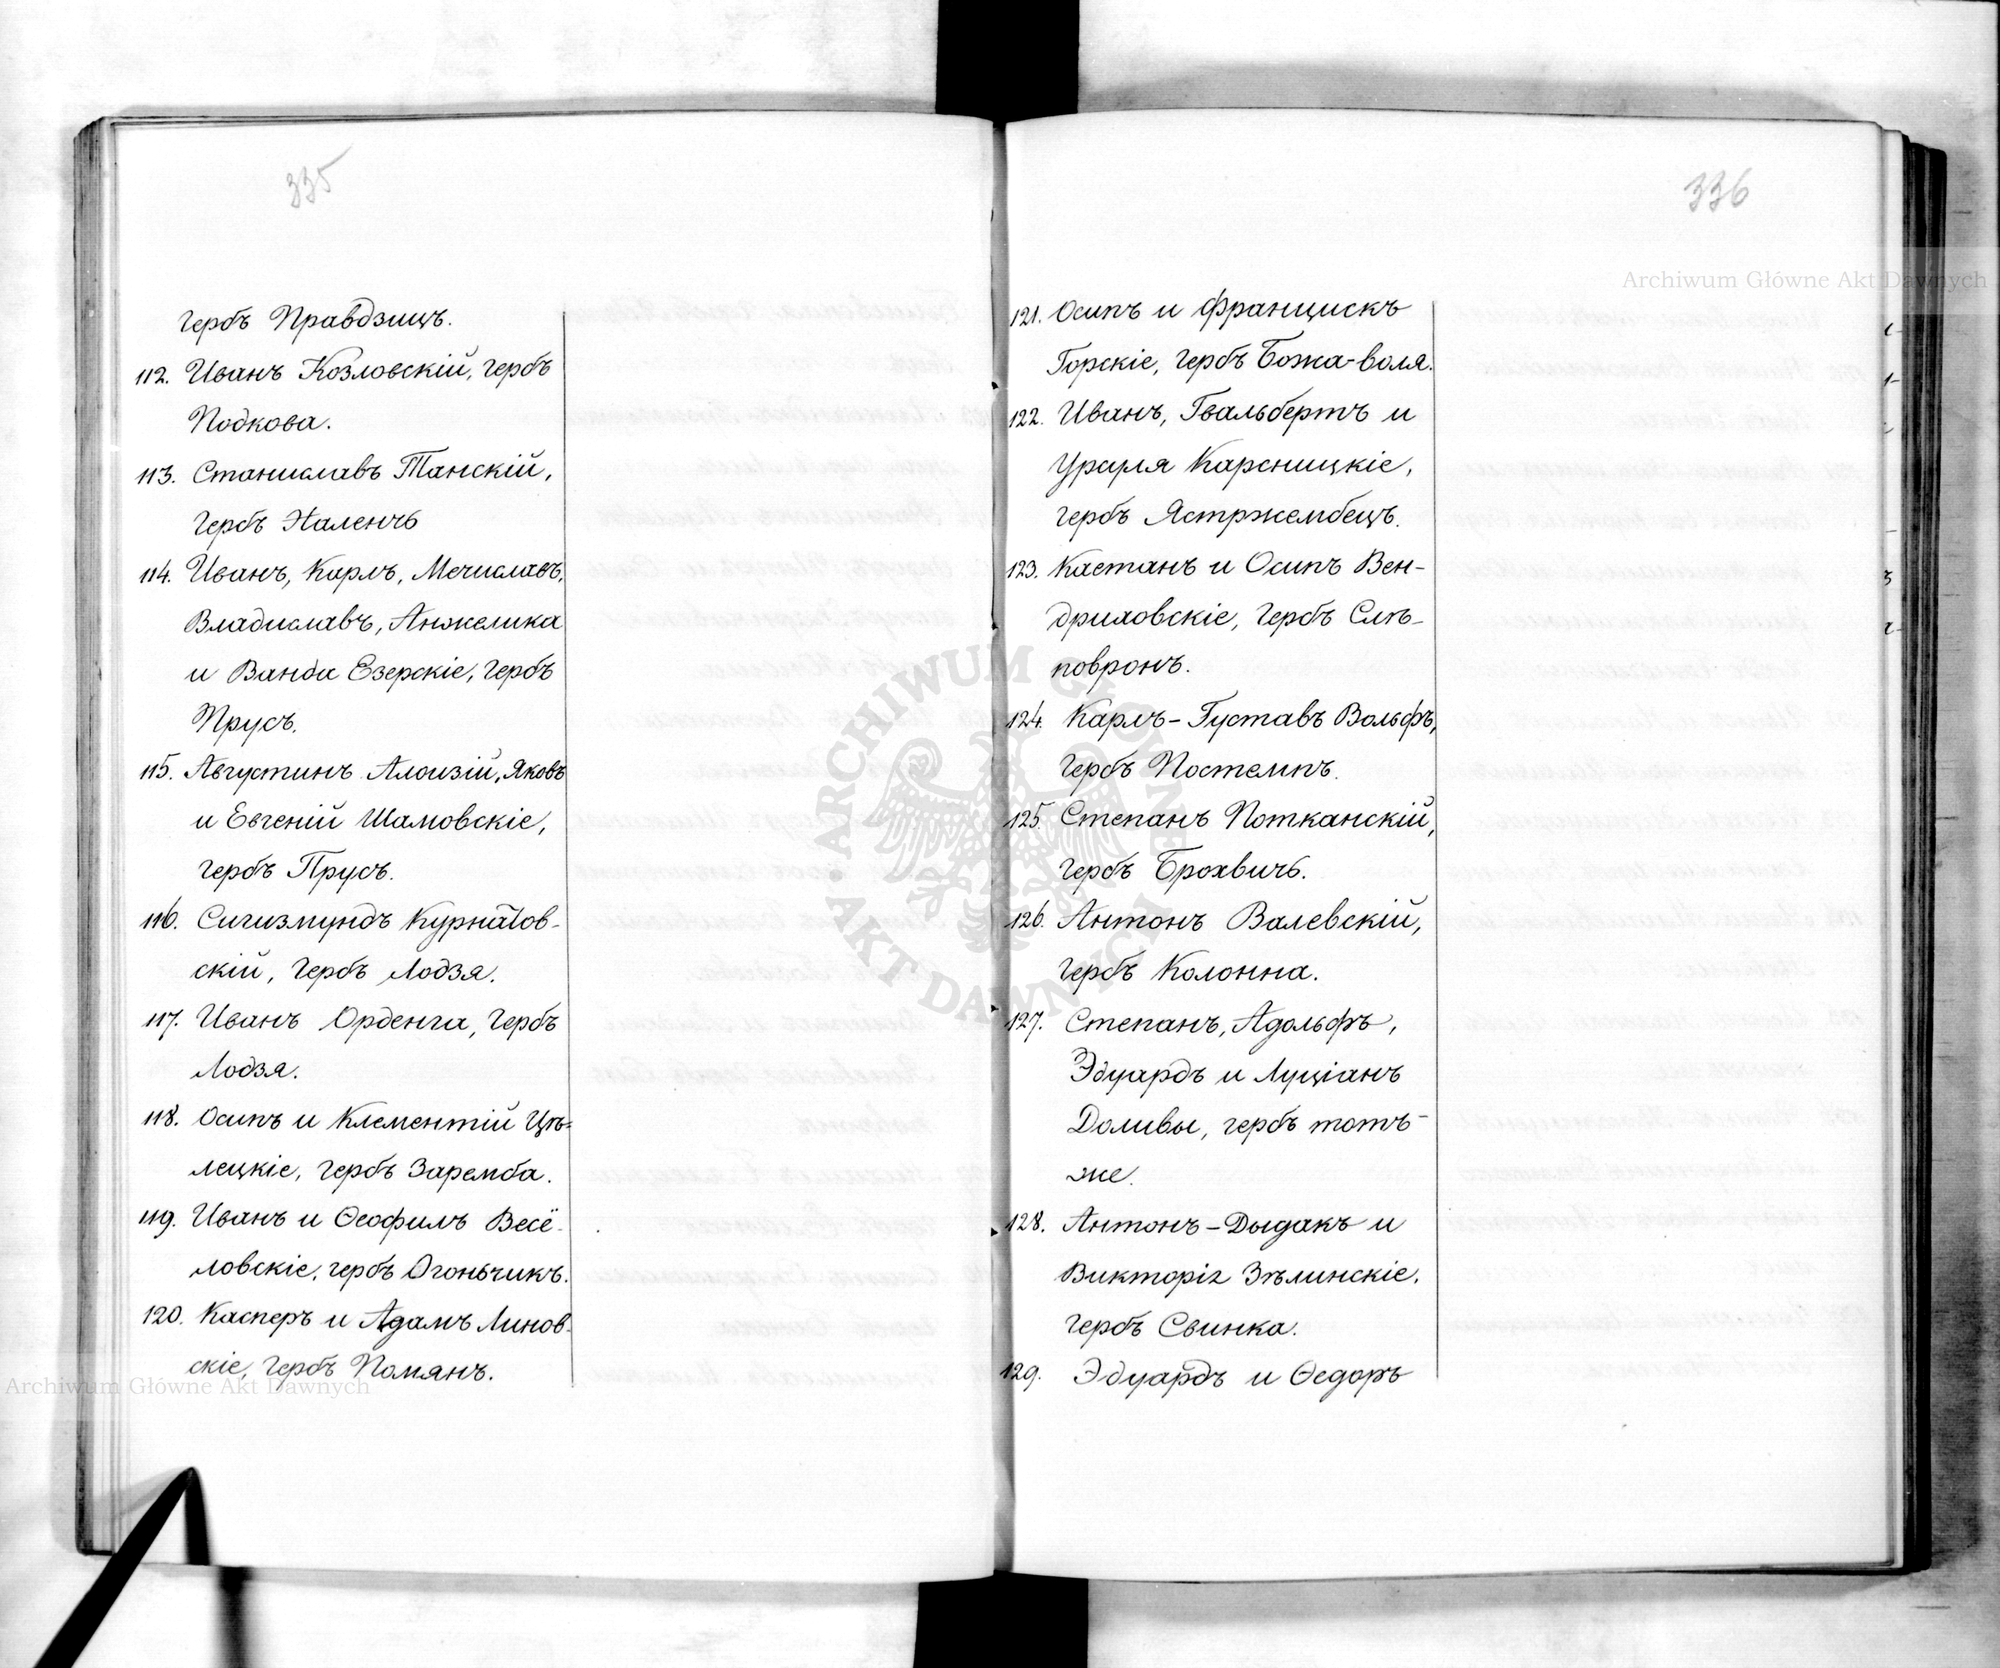 335
гербъ Правдзицъ.
112. Иванъ Козловскій, гербъ
Подкова.
113. Станиславъ Танскій,
гербъ Наленчъ
114. Иванъ, Карлъ, Мечиславъ,
Владиславъ, Анжелика
и Ванда Езерскіе, гербъ
Прусъ.
115. Августинъ Алоизій, Яковъ
и Евгеній Шамовскіе,
гербъ Прусъ.
116. Сигизмундъ Курнатов-
скій, гербъ Лодзя.
117. Иванъ Орденга, гербъ
Лодзя.
118. Осипъ и Клементій Цѣ-
лецкіе, гербъ Заремба.
119. Иванъ и Ѳеофилъ Весё-
ловскіе, гербъ Огончикъ.
120. Касперъ и Адамъ Линов-
скіе, гербъ Помянъ.
Archiwum Główne Akt Dawnych
336
Archiwum Główne Akt Dawnych
121. Осипъ и Францискъ
Горскіе, гербъ Божа-воля.
122. Иванъ, Гвальбертъ и
Урсуля Карсницкіе,
гербъ Ястржембецъ.
123. Каетанъ и Осипъ Вен-
дриховскіе, гербъ Слѣ-
повронъ.
124. Карлъ-Густавъ Вольфъ,
гербъ Постемпъ.
125. Степанъ Потканскій,
гербъ Брохвичъ.
126. Антонъ Валевскій,
гербъ Колонна.
127. Степанъ, Адольфъ,
Эдуардъ и Луціанъ
Доливы, гербъ тотъ-
же.
128. Антонъ-Дыдакъ и
Викторія Зѣлинскіе,
гербъ Свинка.
129. Эдуардъ и Ѳедоръ
ARCHIWUM GŁÓWNE AKT DAWNYCH